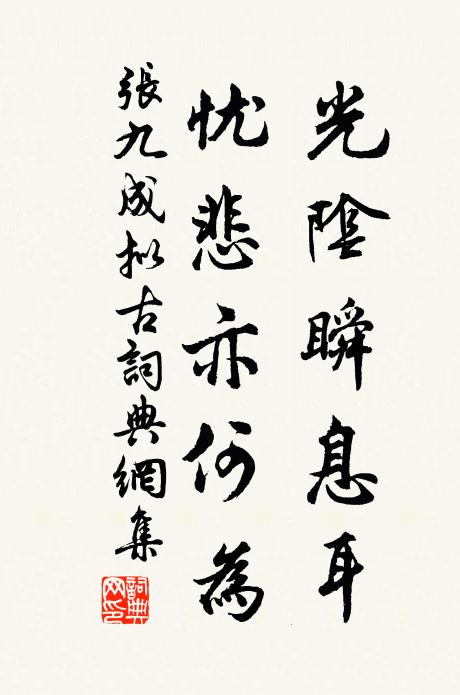 光陰瞬息耳
忧悲亦何為
張九成拟古詞典網集
詞典网印